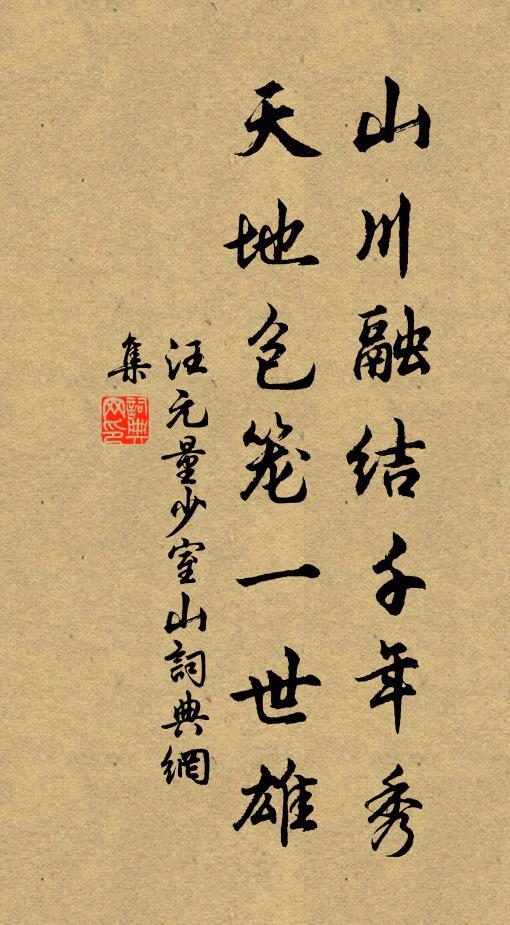 山川融结千年秀
天地包笼一世雄
汪元量少室山詞典網
集
詞典
网印